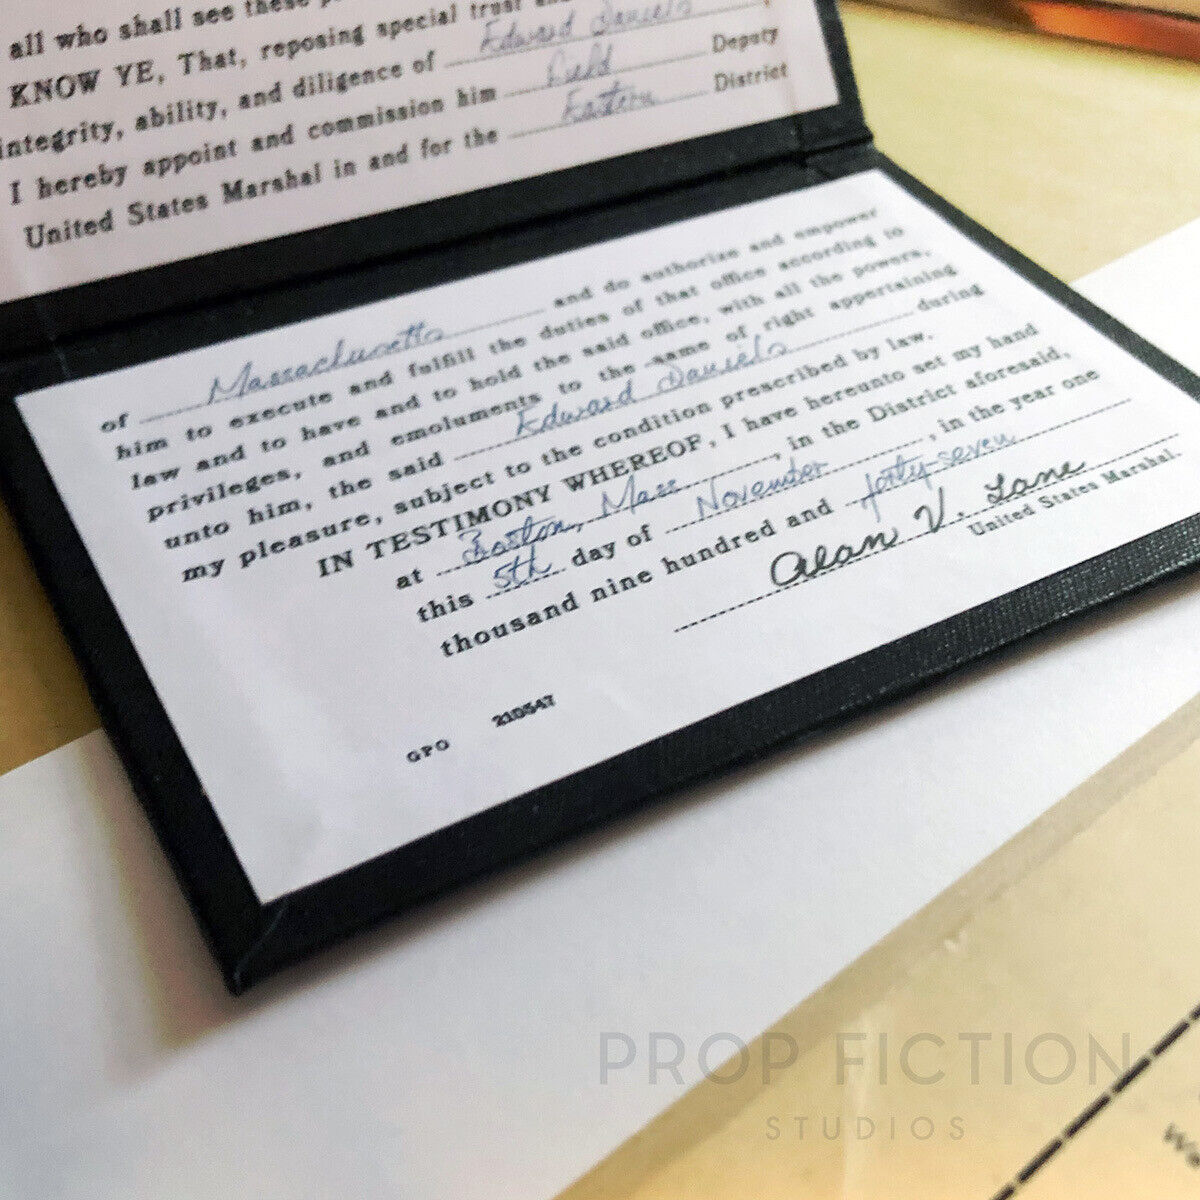 all who shall see these
KNOW YE, That, reposing special trust
integrity, ability, and diligence of Edward Daniels,
I hereby appoint and commission him Field Deputy
United States Marshal in and for the Eastern District
of Massachusetts and do authorize and empower
him to execute and fulfill the duties of that office according to
law and to have and to hold the said office, with all the powers,
privileges, and emoluments to the same of right appertaining
unto him, the said Edward Daniels during
my pleasure, subject to the condition prescribed by law.
IN TESTIMONY WHEREOF, I have hereunto set my hand
at Boston, Mass., in the District aforesaid,
this 5th day of November, in the year one
thousand nine hundred and forty-seven
Alan V. Lane
United States Marshal.
GPO 210547
PROP FICTION
STUDIOS